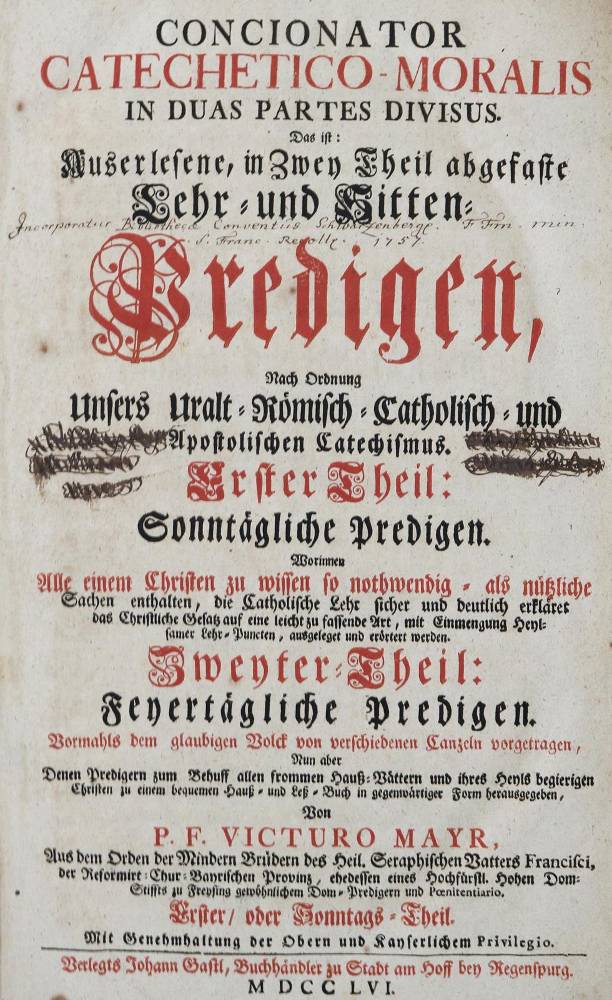 CONCIONATOR
CATECHETICO-MORALIS
IN DUAS PARTES DIVISUS.
Das ist:
Auserlesene, in Zwey Theil abgefaste
Lehr- und Sitten-
Incorporatur Bibliothecæ Conventus Schwarzenberg. F. Fm. min.
S. Franc. Recoll. 1757.
Predigen,
Nach Ordnung
Unsers Uralt-Römisch-Catholisch-und
Apostolischen Catechismus.
Erster Theil:
Sonntägliche Predigen.
Worinnen
Alle einem Christen zu wissen so nothwendig- als nützliche
Sachen enthalten, die Catholische Lehr sicher und deutlich erkläret
das Christliche Gesatz auf eine leicht zu fassende Art, mit Einmengung Heyl-
samer Lehr-Puncten, ausgeleget und erörtert werden.
Zweyter-Theil:
Feyertägliche Predigen.
Vormahls dem glaubigen Volck von verschiedenen Canzeln vorgetragen,
Nun aber
Denen Predigern zum Behuff allen frommen Hauß-Vättern und ihres Heyls begierigen
Christen zu einem bequemen Hauß- und Leß-Buch in gegenwärtiger Form herausgegeben,
Von
P. F. VICTURO MAYR,
Aus dem Orden der Mindern Brüdern des Heil. Seraphischen Vatters Francisci,
der Reformirt-Chur-Bayrischen Provinz, ehedessen eines Hochfürstl. Hohen Dom-
Stiffts zu Freysing gewöhnlichem Dom-Predigern und Pœnitentiario.
Erster/ oder Sonntags-Theil.
Mit Genehmhaltung der Obern und Kayserlichem Privilegio.
Verlegts Johann Gastl, Buchhändler zu Stadt am Hoff bey Regenspurg.
MDCCLVI.